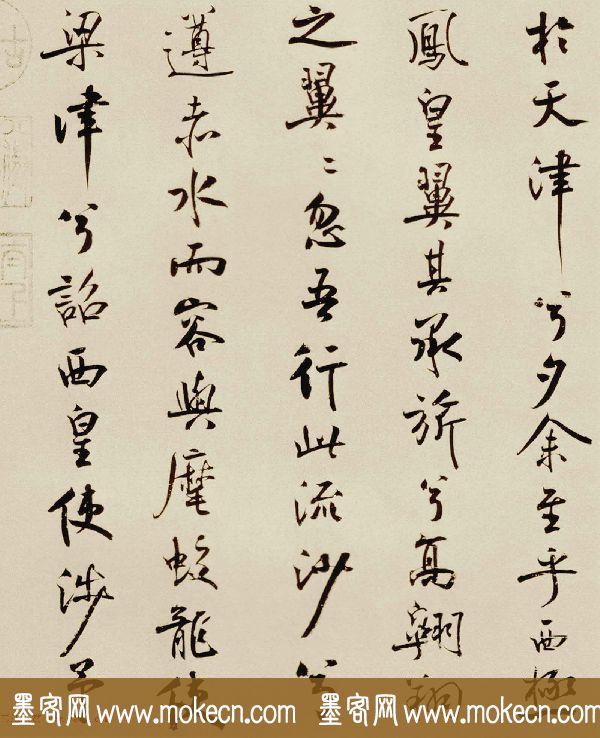 於天津兮夕余至乎西極
鳳皇翼其承旂兮高翱翔
之翼〻忽吾行此流沙兮
遵赤水而容與麾蛟龍使
梁津兮詔西皇使涉予
墨客网 www.mokecn.com 墨客网 www.mokecn.com